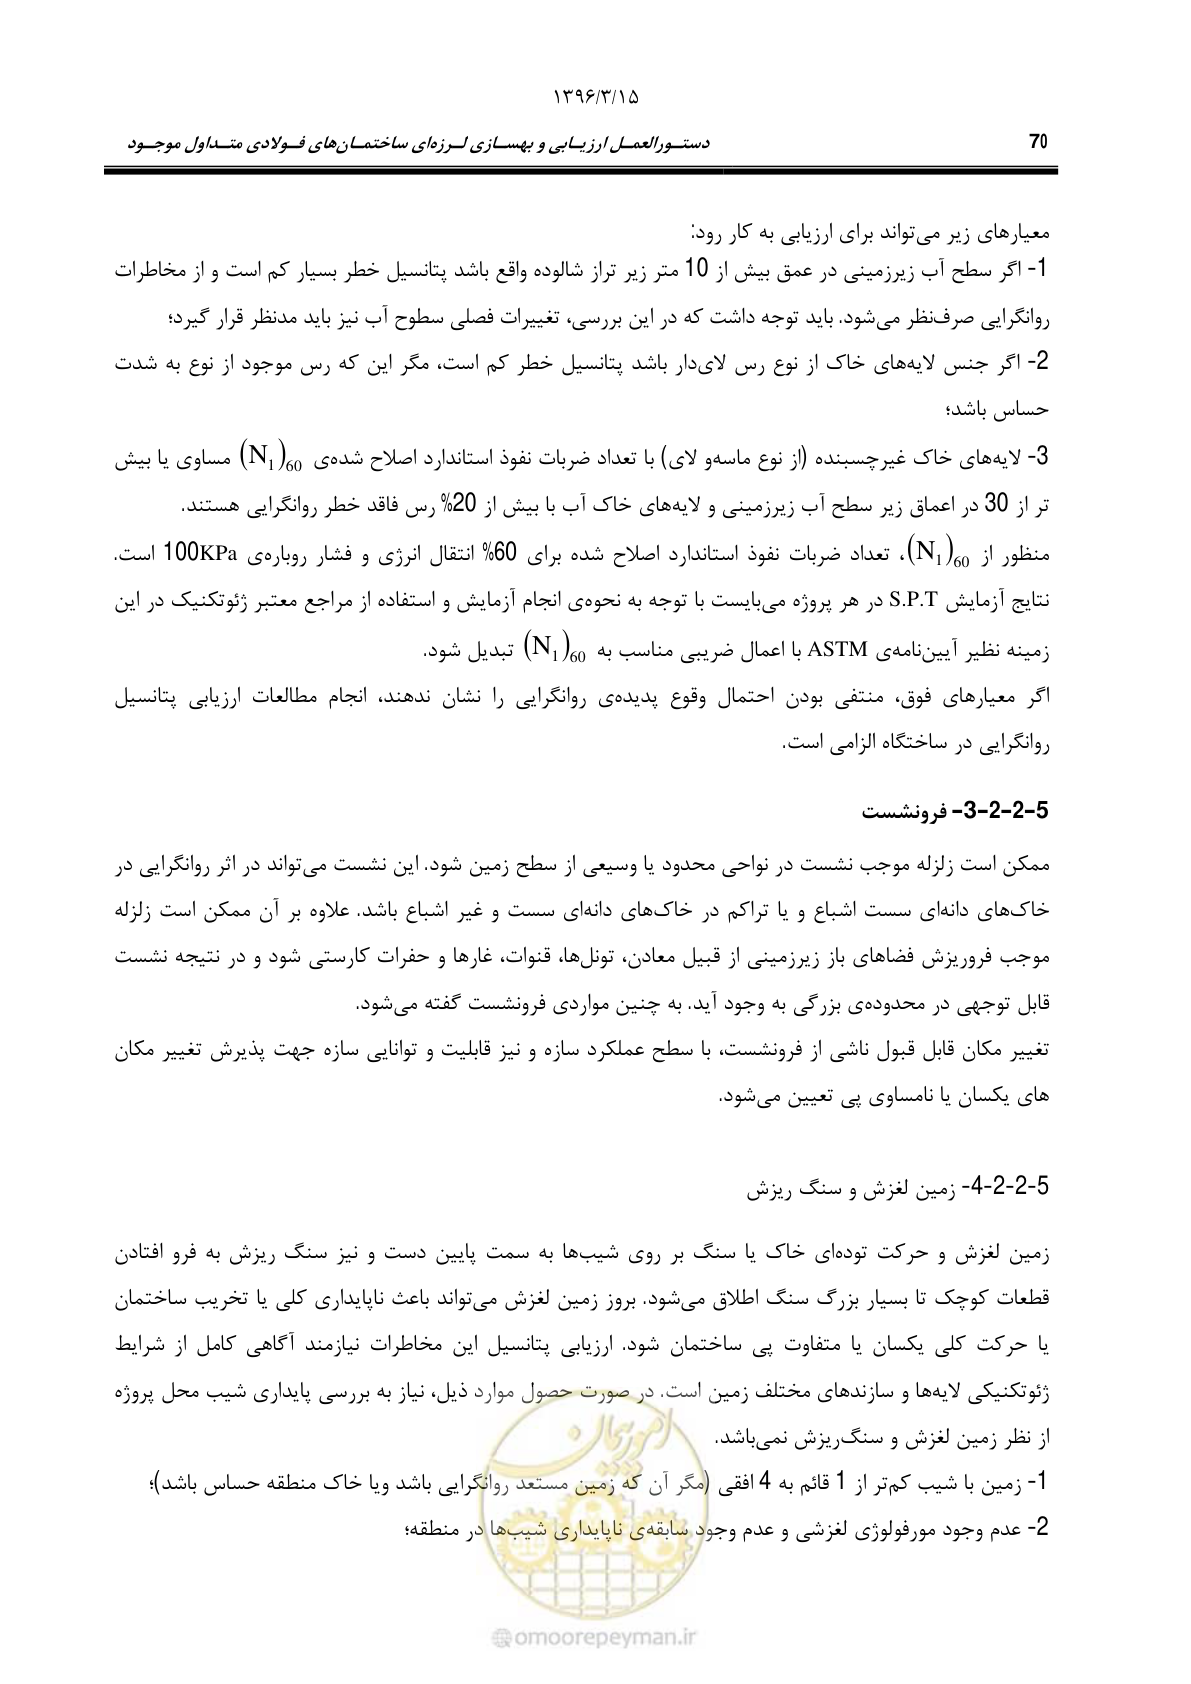 ۱۳۹۶/۳/۱۵
70 دستورالعمل ارزیابی و بهسازی لرزه‌ای ساختمان‌های فولادی متداول موجود
معیارهای زیر می‌تواند برای ارزیابی به کار رود:
1- اگر سطح آب زیرزمینی در عمق بیش از 10 متر زیر تراز شالوده واقع باشد پتانسیل خطر بسیار کم است و از مخاطرات
روانگرایی صرف‌نظر می‌شود. باید توجه داشت که در این بررسی، تغییرات فصلی سطوح آب نیز باید مدنظر قرار گیرد؛
2- اگر جنس لایه‌های خاک از نوع رس لای‌دار باشد پتانسیل خطر کم است، مگر این که رس موجود از نوع به شدت
حساس باشد؛
3- لایه‌های خاک غیرچسبنده (از نوع ماسه‌و لای) با تعداد ضربات نفوذ استاندارد اصلاح شده‌ی (N1)60 مساوی یا بیش
تر از 30 در اعماق زیر سطح آب زیرزمینی و لایه‌های خاک آب با بیش از 20% رس فاقد خطر روانگرایی هستند.
منظور از (N1)60، تعداد ضربات نفوذ استاندارد اصلاح شده برای 60% انتقال انرژی و فشار روباره‌ی 100KPa است.
نتایج آزمایش S.P.T در هر پروژه می‌بایست با توجه به نحوه‌ی انجام آزمایش و استفاده از مراجع معتبر ژئوتکنیک در این
زمینه نظیر آیین‌نامه‌ی ASTM با اعمال ضریبی مناسب به (N1)60 تبدیل شود.
اگر معیارهای فوق، منتفی بودن احتمال وقوع پدیده‌ی روانگرایی را نشان ندهند، انجام مطالعات ارزیابی پتانسیل
روانگرایی در ساختگاه الزامی است.
5-2-2-3- فرونشست
ممکن است زلزله موجب نشست در نواحی محدود یا وسیعی از سطح زمین شود. این نشست می‌تواند در اثر روانگرایی در
خاک‌های دانه‌ای سست اشباع و یا تراکم در خاک‌های دانه‌ای سست و غیر اشباع باشد. علاوه بر آن ممکن است زلزله
موجب فروریزش فضاهای باز زیرزمینی از قبیل معادن، تونل‌ها، قنوات، غارها و حفرات کارستی شود و در نتیجه نشست
قابل توجهی در محدوده‌ی بزرگی به وجود آید. به چنین مواردی فرونشست گفته می‌شود.
تغییر مکان قابل قبول ناشی از فرونشست، با سطح عملکرد سازه و نیز قابلیت و توانایی سازه جهت پذیرش تغییر مکان
های یکسان یا نامساوی پی تعیین می‌شود.
5-2-2-4- زمین لغزش و سنگ ریزش
زمین لغزش و حرکت توده‌ای خاک یا سنگ بر روی شیب‌ها به سمت پایین دست و نیز سنگ ریزش به فرو افتادن
قطعات کوچک تا بسیار بزرگ سنگ اطلاق می‌شود. بروز زمین لغزش می‌تواند باعث ناپایداری کلی یا تخریب ساختمان
یا حرکت کلی یکسان یا متفاوت پی ساختمان شود. ارزیابی پتانسیل این مخاطرات نیازمند آگاهی کامل از شرایط
ژئوتکنیکی لایه‌ها و سازندهای مختلف زمین است. در صورت حصول موارد ذیل، نیاز به بررسی پایداری شیب محل پروژه
از نظر زمین لغزش و سنگ‌ریزش نمی‌باشد.
1- زمین با شیب کم‌تر از 1 قائم به 4 افقی (مگر آن که زمین مستعد روانگرایی باشد ویا خاک منطقه حساس باشد)؛
2- عدم وجود مورفولوژی لغزشی و عدم وجود سابقه‌ی ناپایداری شیب‌ها در منطقه؛
امور پیمان
@omoorepeyman.ir